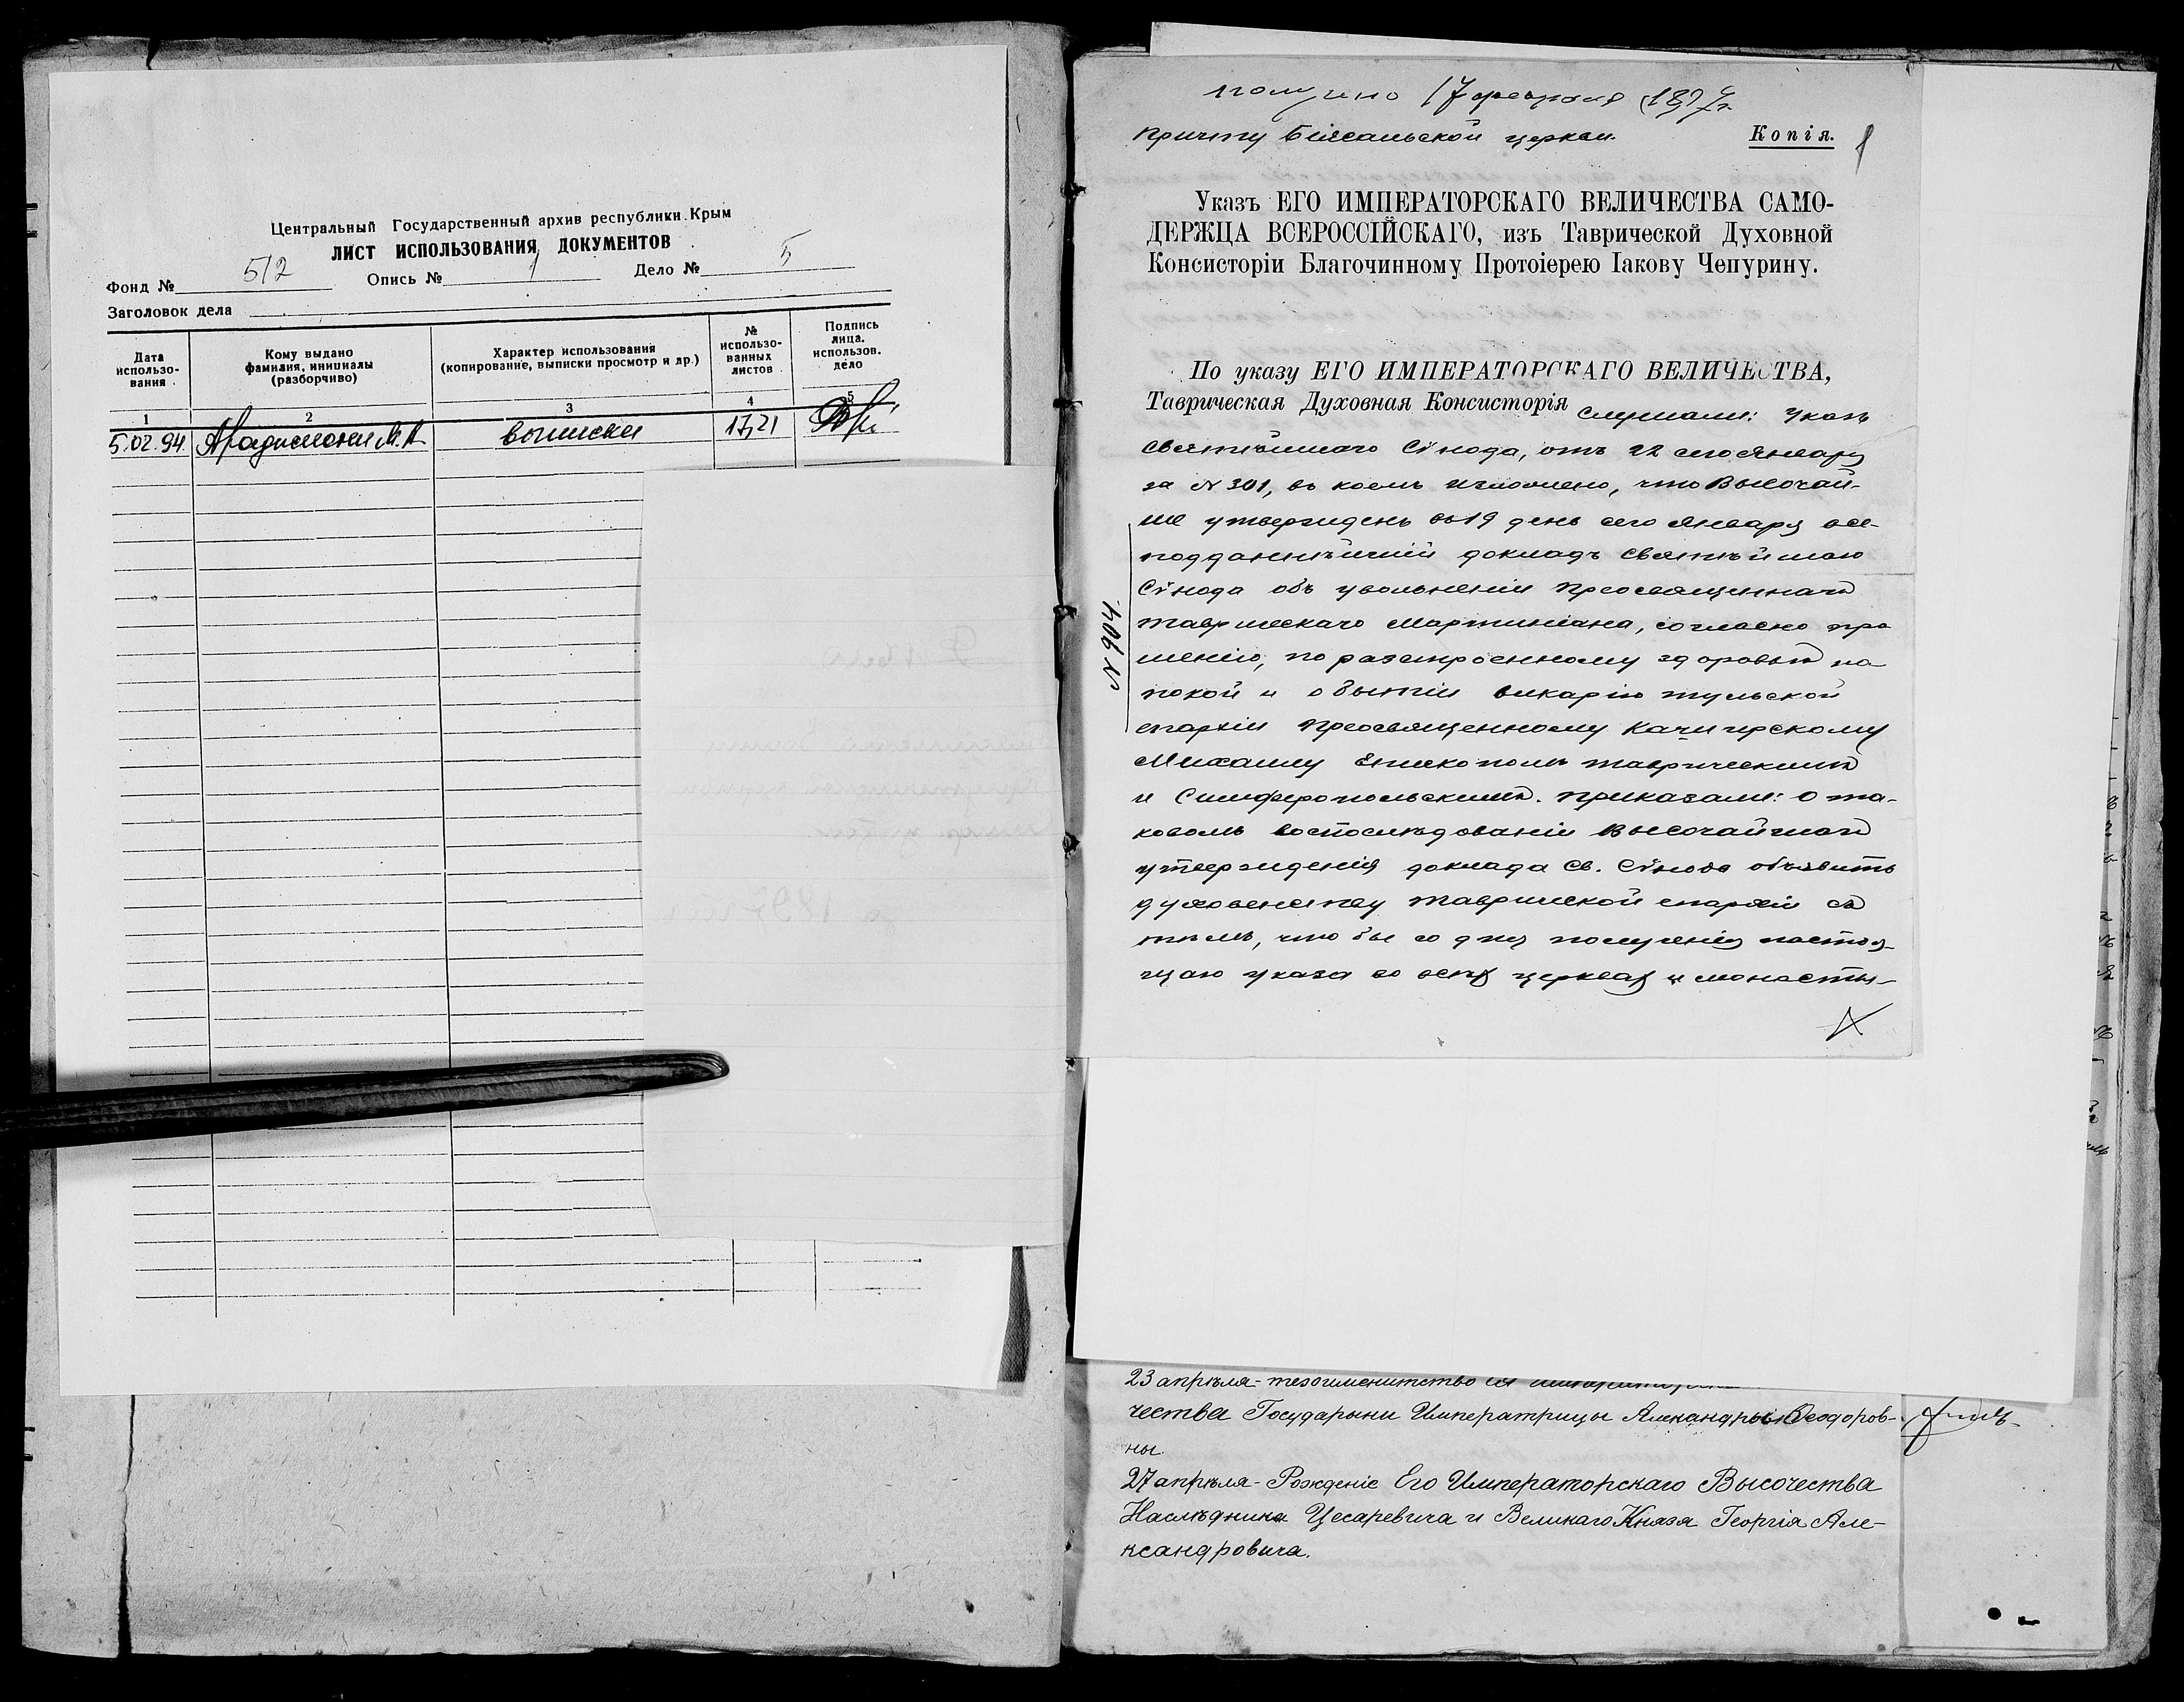 Центральный Государственный архив республики Крым
ЛИСТ ИСПОЛЬЗОВАНИЯ ДОКУМЕНТОВ
Фонд № 512 Опись № 1 Дело № 5
Заголовок дела
Дата использо-вания
Кому выдано фамилия, инициалы (разборчиво)
Характер использования (копирование, выписки просмотр и др.)
№ использо-ванных листов
Подпись лица. использов. дело
1 2 3 4 5
5.02.94. М.А. выписки 17,21
получено 17 февраля 1897 г.
причту Біясальской церкви.
Копія.
Указъ ЕГО ИМПЕРАТОРСКАГО ВЕЛИЧЕСТВА САМО-
ДЕРЖЦА ВСЕРОССІЙСКАГО, изъ Таврической Духовной
Консисторіи Благочинному Протоіерею Іакову Чепурину.
По указу ЕГО ИМПЕРАТОРСКАГО ВЕЛИЧЕСТВА,
Таврическая Духовная Консисторія слушали: Указъ
Святѣйшаго Сѵнода, отъ 22 сего Января
за № 301, въ коемъ изложено, что Высочай-
ше утвержденъ въ 19 день сего Января все-
подданнѣйшій докладъ Святѣйшаго
Сѵнода объ увольненіи Преосвященнаго
Таврическаго Мартиніана, согласно про
шенію, по разстроенному здоровью на
покой и о бытіи викарію тульской
епархіи Преосвященному Каширскому
Михаилу Епископомъ Таврическимъ
и Симферопольскимъ. Приказали: о та-
ковомъ воспослѣдованіи Высочайшаго
утвержденія доклада Св. Сѵнода объявить
духовенству Таврической епархіи съ
тѣмъ, что бы со дня полученія настоя-
щаго указа во всѣхъ церквахъ и монасты-
№ 904
23 апрѣля - тезоименитство
чества Государыни Императрицы Александры Ѳеодоров-
ны.
27 апрѣля - Рожденіе Его Императорскаго Высочества
Наслѣдника Цесаревича и Великаго Князя Георгія Але-
ксандровича.